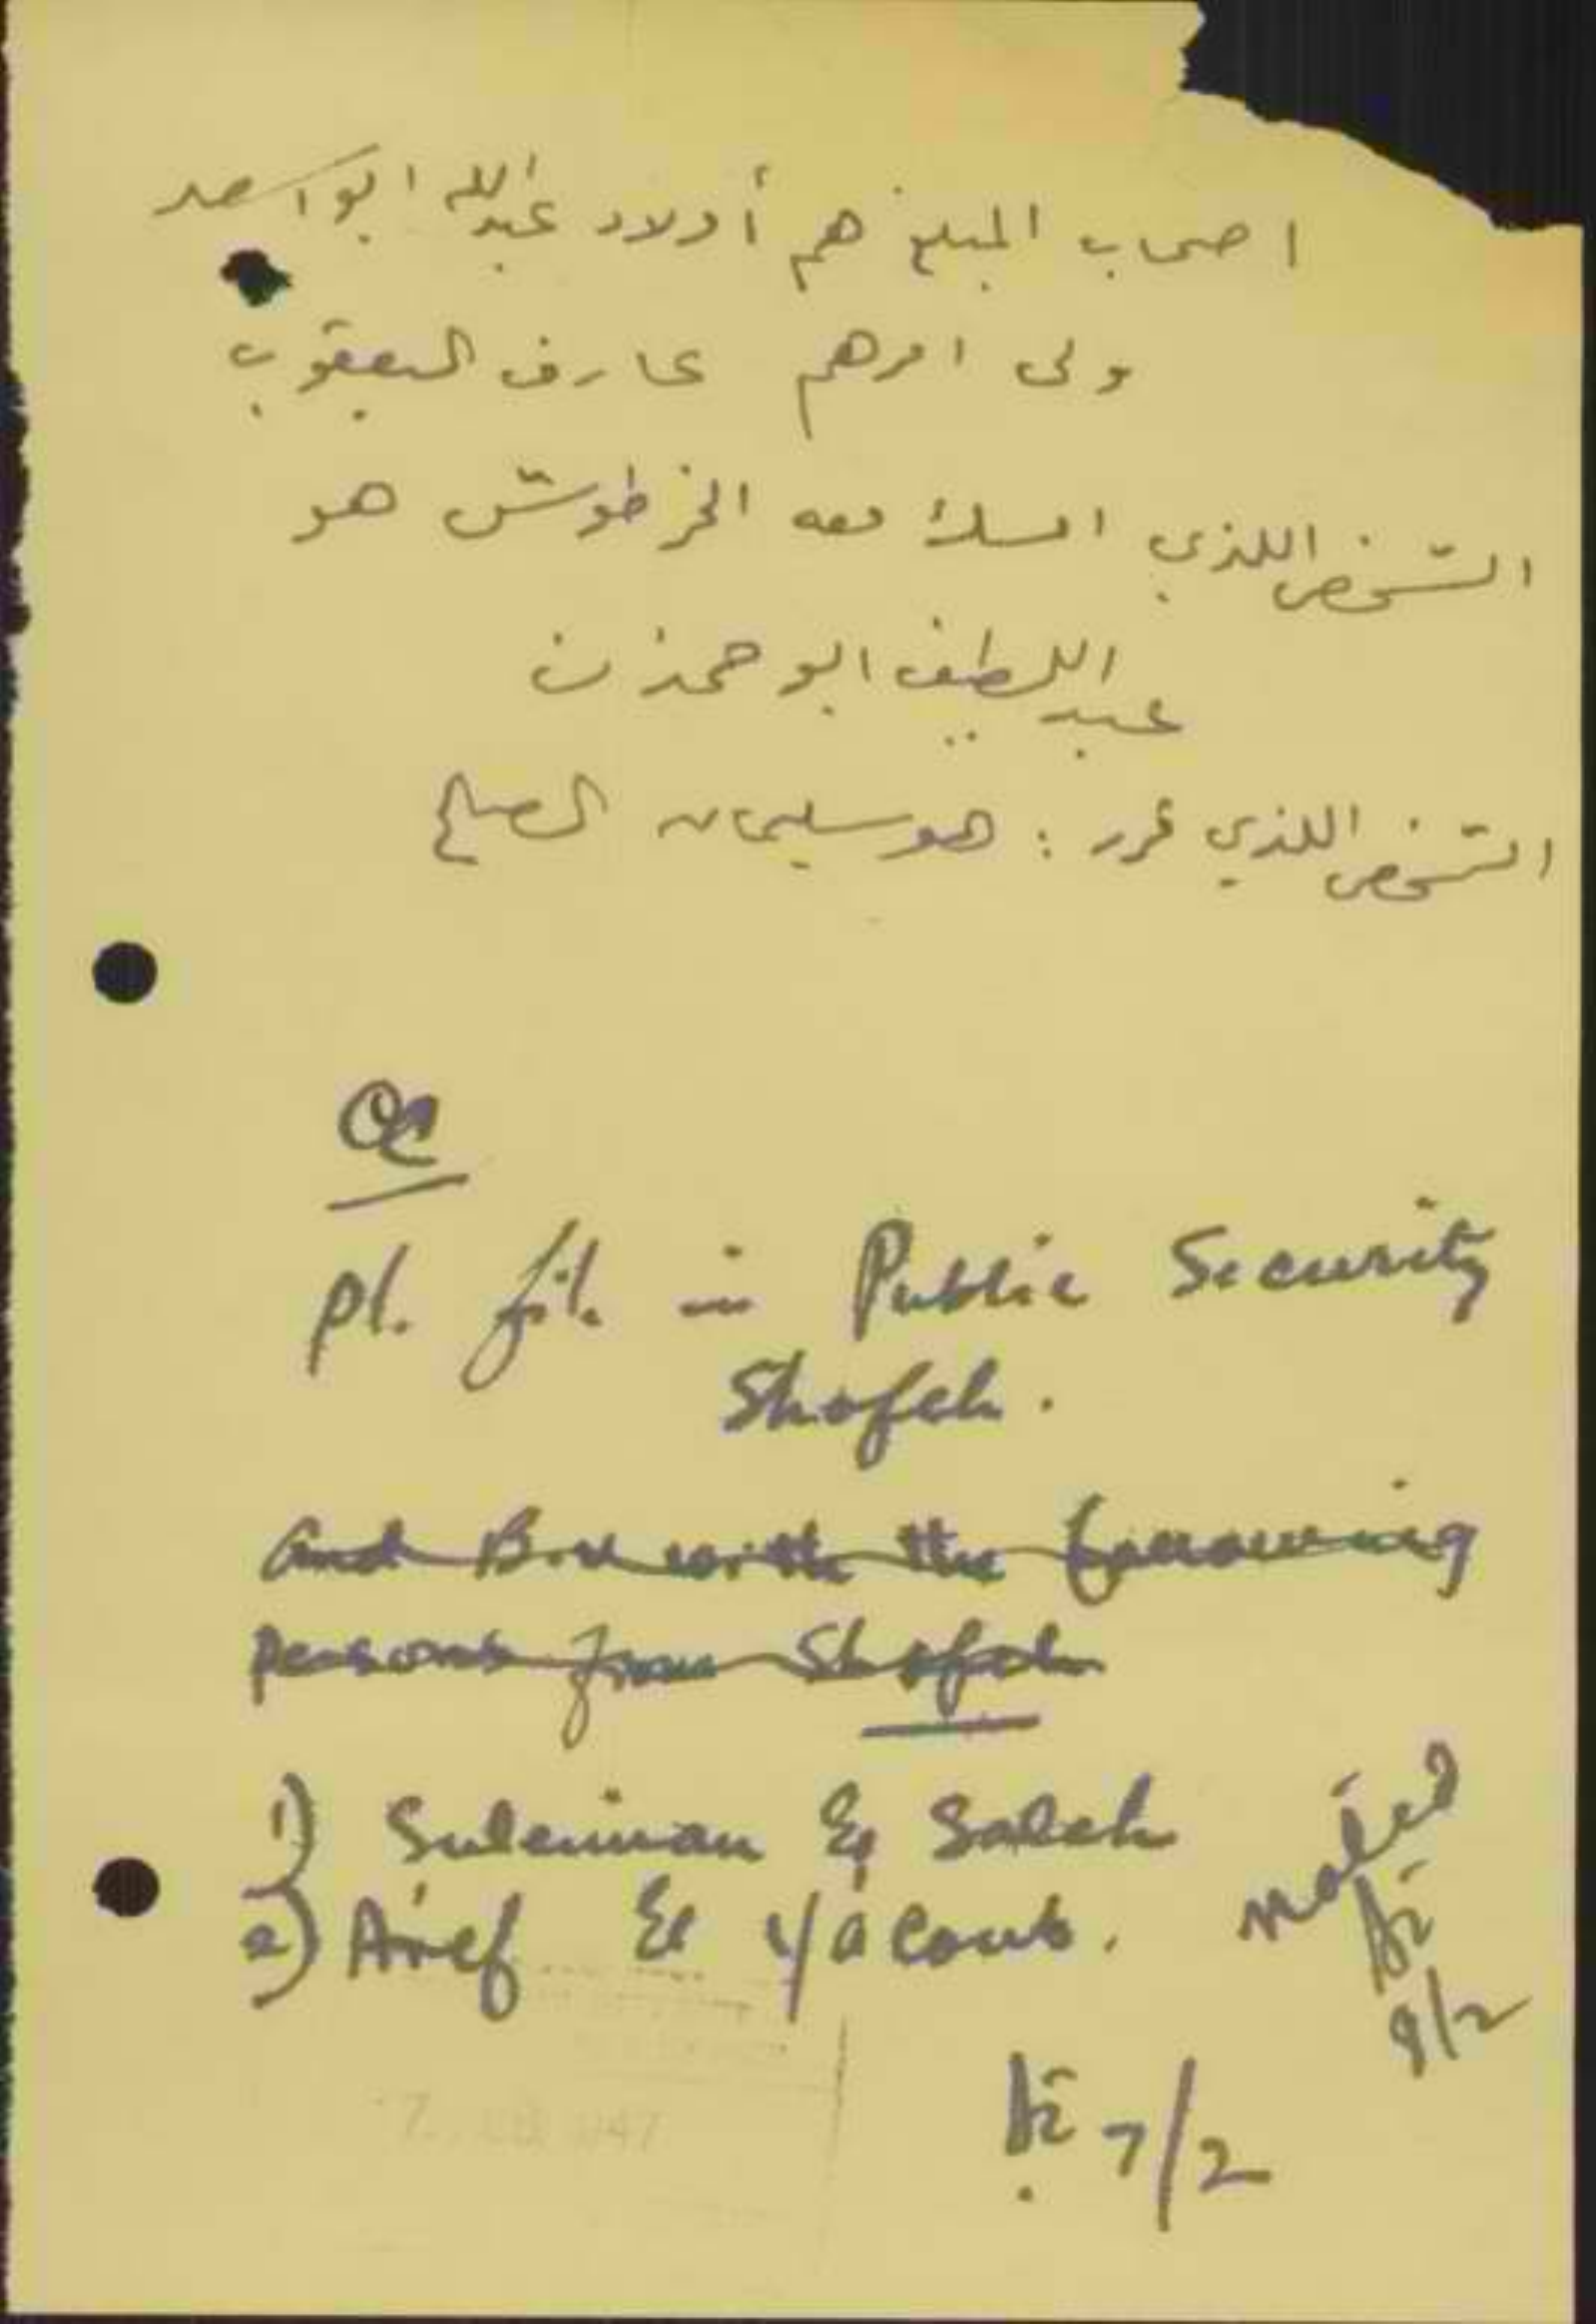 اصحاب المبلغ هم أولاد عبدالله ابو اسعد
ولى امرهم عارف اليعقوب
الشخص اللذي امسك معه الخرطوش هو
عبد اللطيف ابو حمدن
الشخص اللذي قرر : هو سليمان الصالح
OC
Pl. file in Public Security
Shafeh.
and B.U with the following
persons from Shafeh
1) Suleiman El Saleh
2) Aref El Yacoub.
noted
8/2
7/2
7 FEB 1947